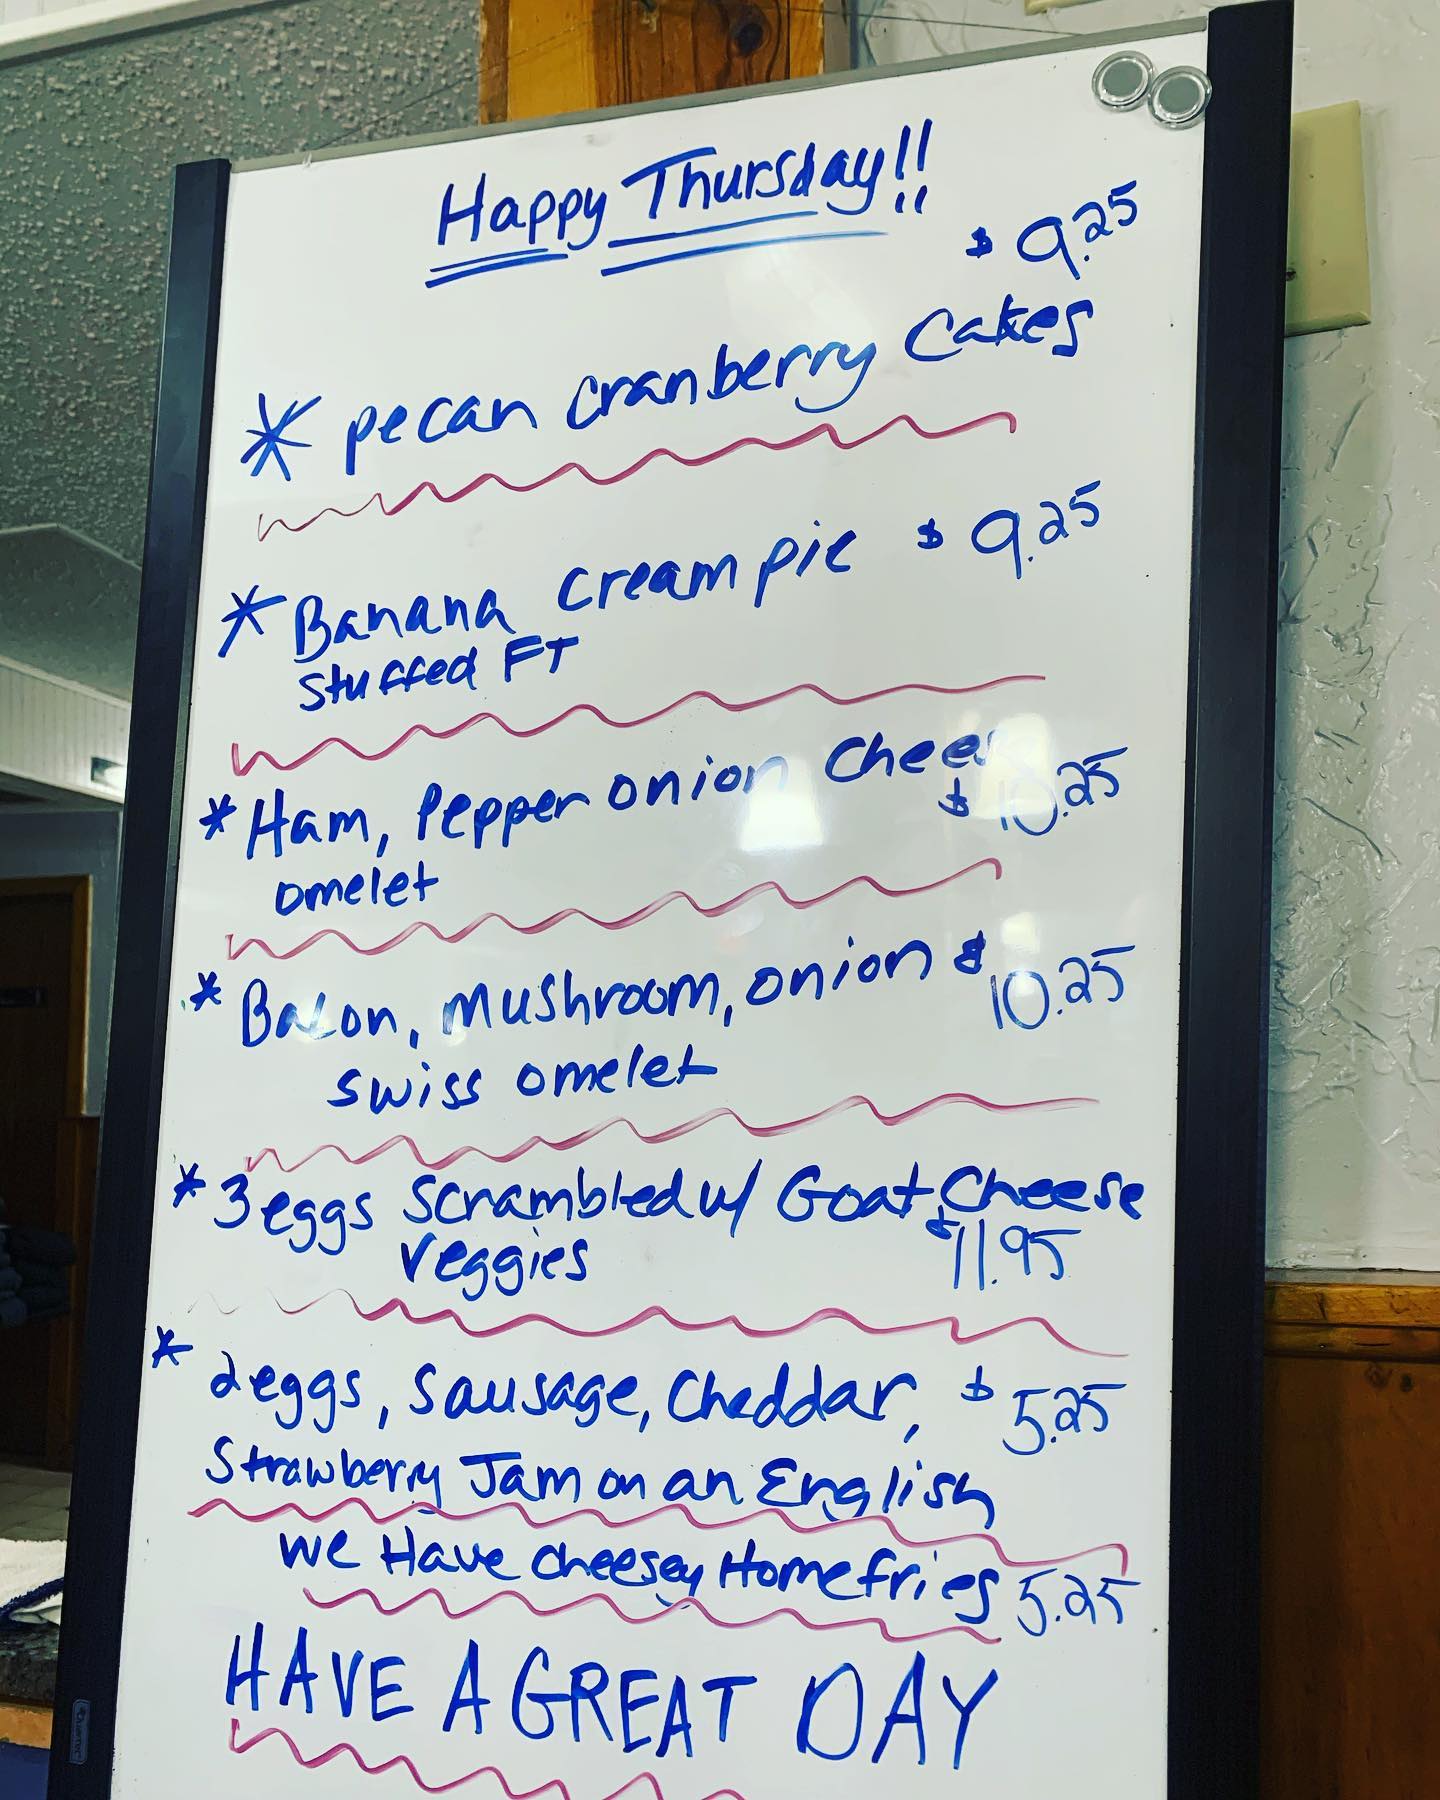 Happy Thursday!!
$ 9.25
* pecan cranberry Cakes
* Banana cream pie $ 9.25
stuffed FT
* Ham, Pepper onion Cheese
$ 10.25
omelet
* Bacon, mushroom, onion $ 10.25
swiss omelet
* 3 eggs scrambled w/ Goat Cheese
veggies $11.95
* 2 eggs, Sausage, Cheddar, $ 5.25
Strawberry Jam on an English
we Have cheesey Homefries 5.25
HAVE A GREAT DAY
Quartet